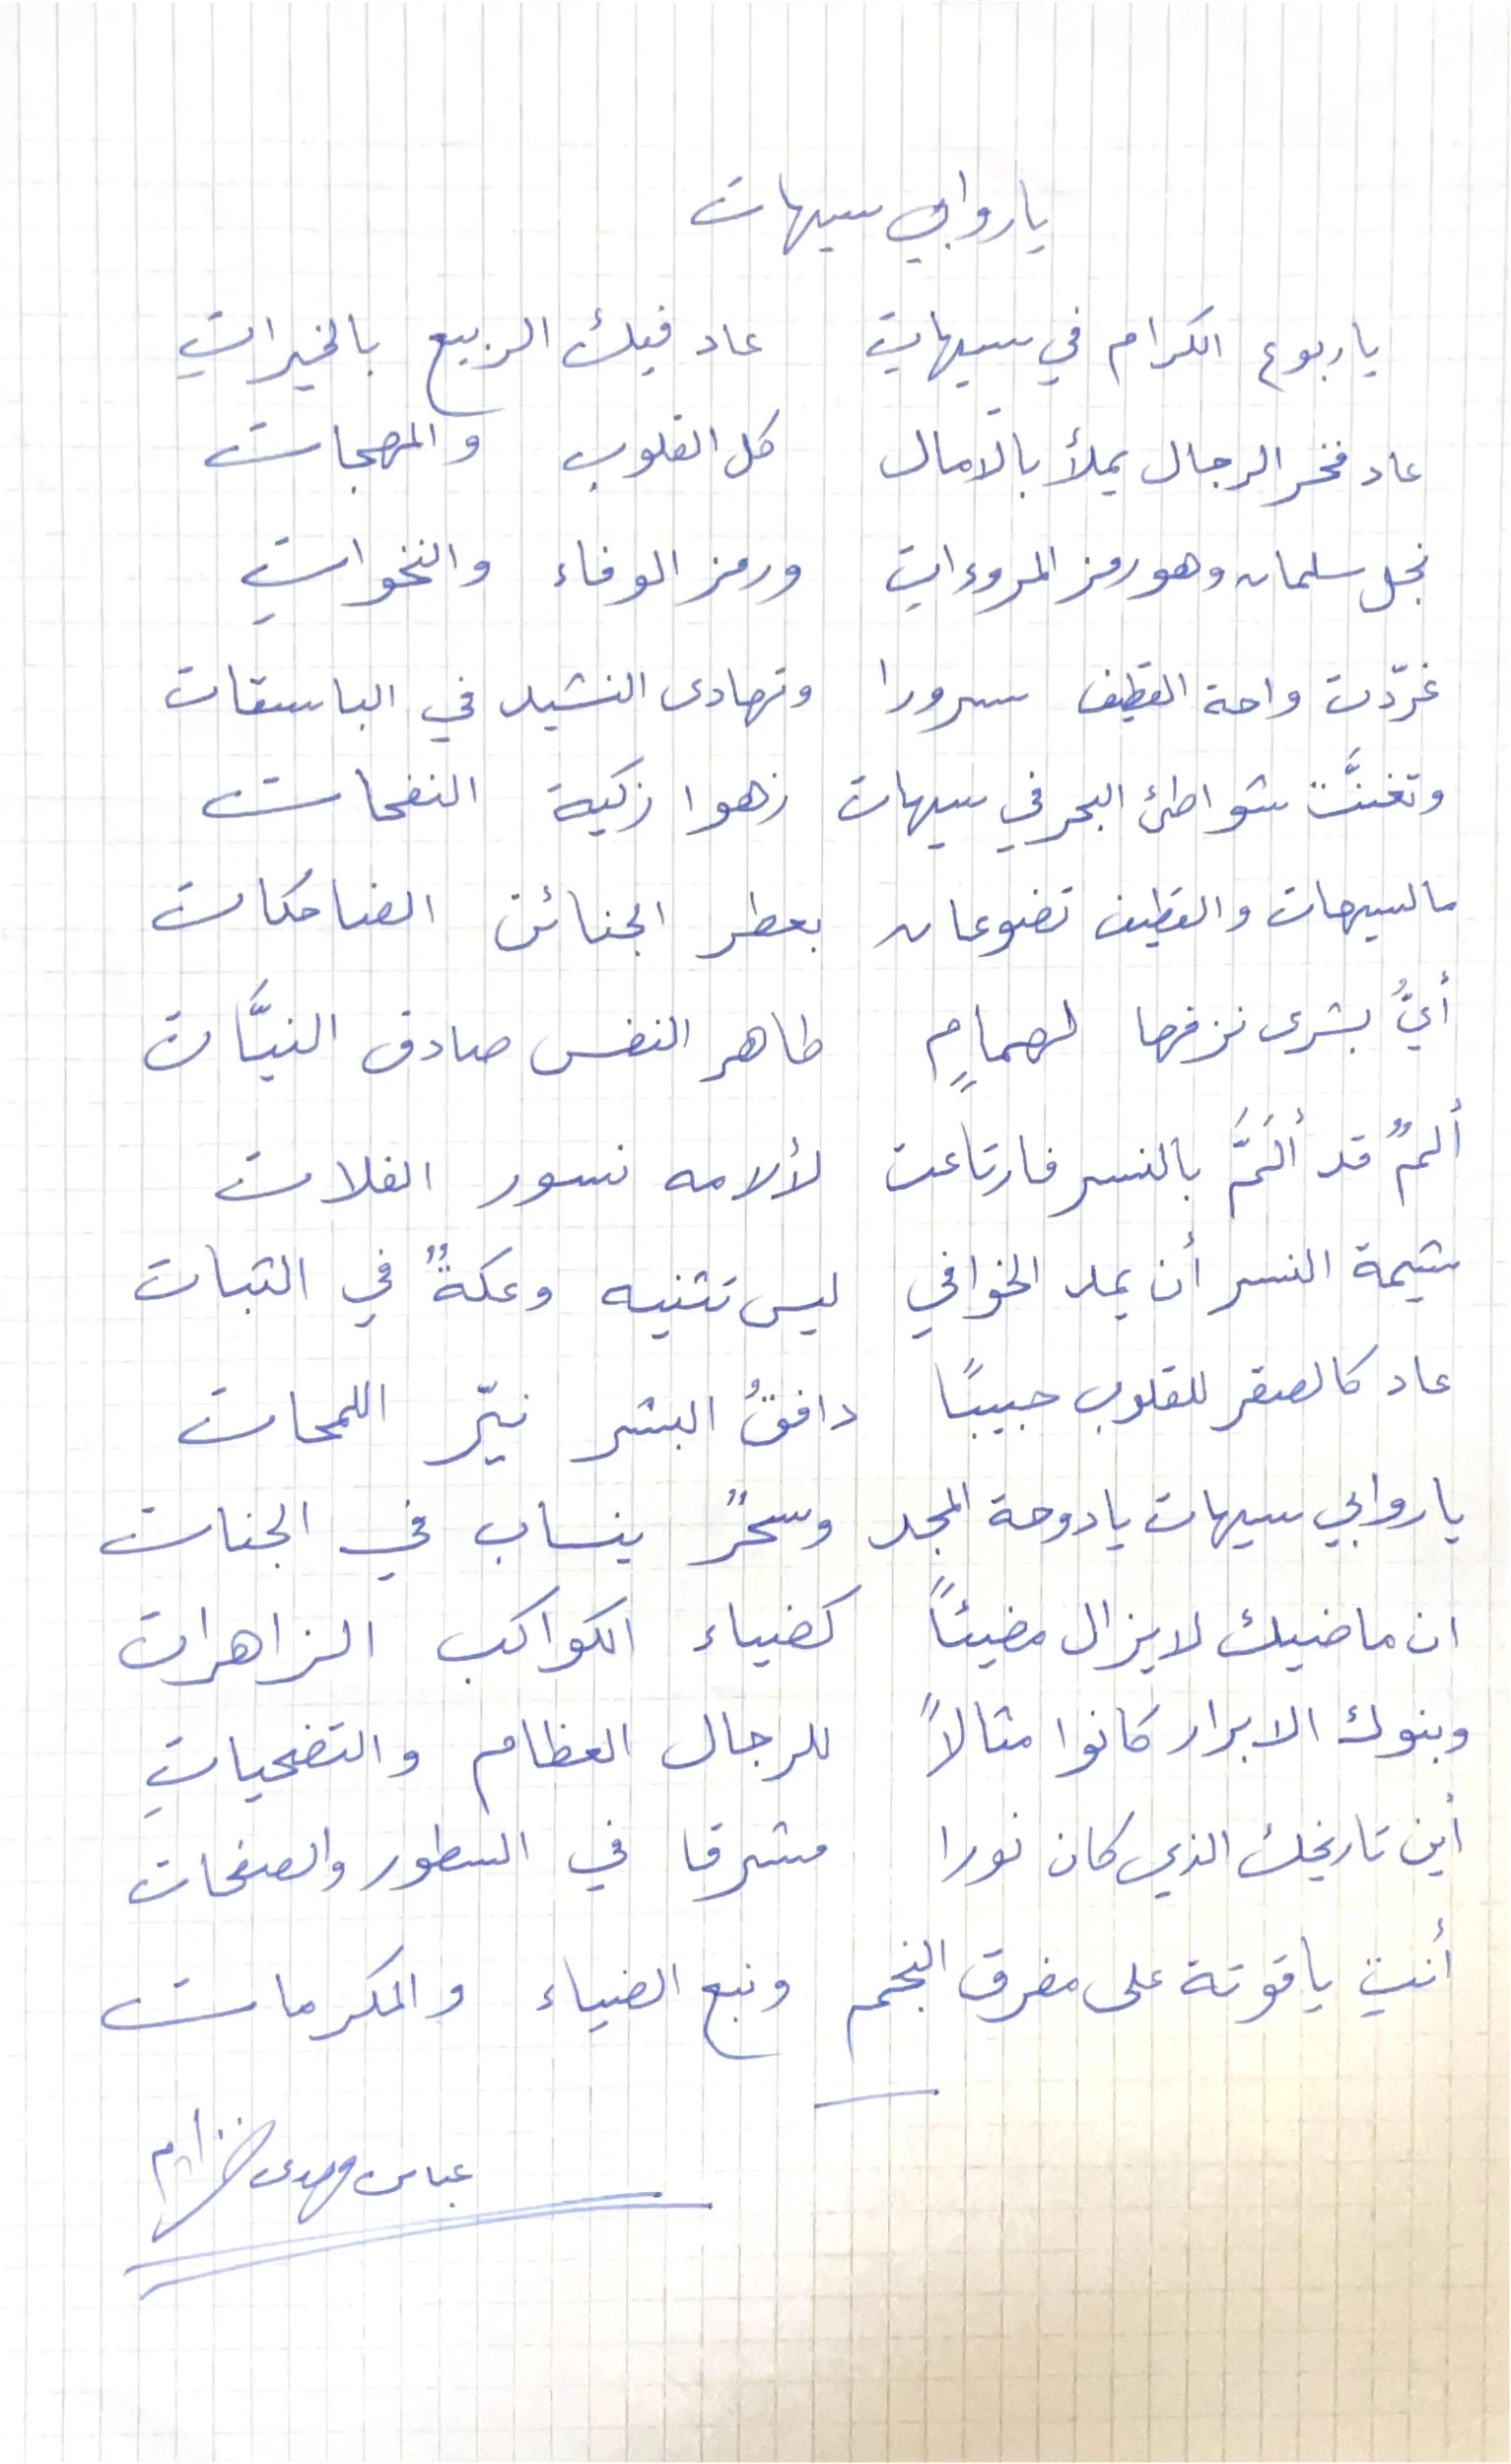 ياروابي سيهات
ياربوع الكرام في سيهاتِ عاد فيك الربيع بالخيراتِ
عاد فخر الرجال يملأ بالآمال كل القلوب والمهجات
نجل سلمان وهو رمز المروءاتِ ورمز الوفاء والنخواتِ
غرّدت واحة القطيف سرورا وتهادى النشيد في الباسقات
وتغنَّت شواطئ البحر في سيهات زهوا زكية النفحات
مالسيهات والقطيف تضوعان بعطر الجنائن الضاحكات
أيُّ بشرى نزفها لهمامٍ طاهر النفس صادق النيَّات
ألمٌ قد ألَمَّ بالنسر فارتاعت لألامه نسور الفلات
شيمة النسر أن يمد الخوافي ليس تثنيه وعكةٌ في الثبات
عاد كالصقر للقلوب حبيبًا دافقُ البشر نيّر اللمحات
ياروابي سيهات يادوحة المجد وسحرٌ ينساب في الجنات
ان ماضيك لايزال مضيئاً كضياء الكواكب الزاهرات
وبنوك الابرار كانوا مثالاً للرجال العظام والتضحياتِ
أين تاريخك الذي كان نورا مشرقا في السطور والصفحات
أنتِ ياقوتة على مفرق النجم ونبع الضياء والمكرمات
عباس مهدي خزام